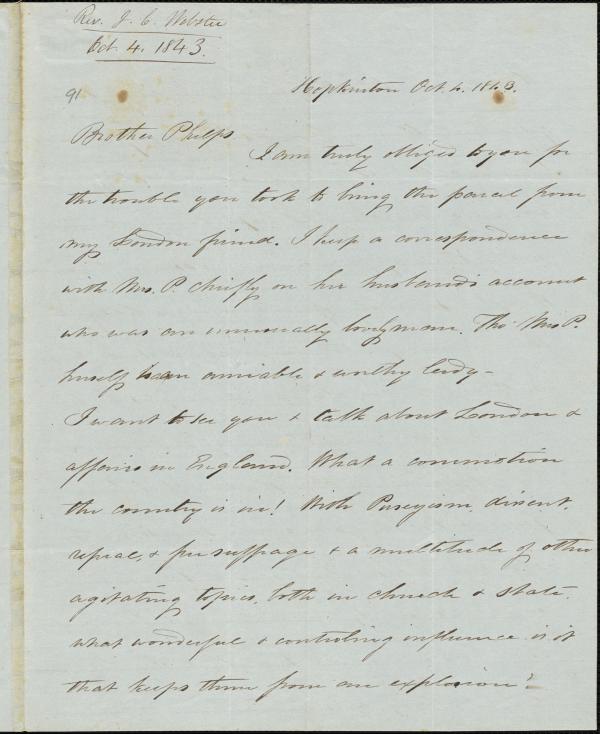 Rev. J. C. Webster
Oct. 4. 1843.
91
Hopkinton Oct. 4. 1843.
Brother Phelps
I am truly obliged to you for
the trouble you took to bring the parcel from
my London friend. I keep a correspondence
with Mrs. P. chiefly on her husband's account
who was an unusually lovely man. Tho' Mrs P.
herself is an amiable & worthy lady -
I want to see you & talk about London &
affairs in England. What a commotion
the country is in! With Puseyism, dissent,
repeal, & free suffrage & a multitude of other
agitating topics, both in church & state.
what wonderful & controling influence is it
that keeps them from an explosion?